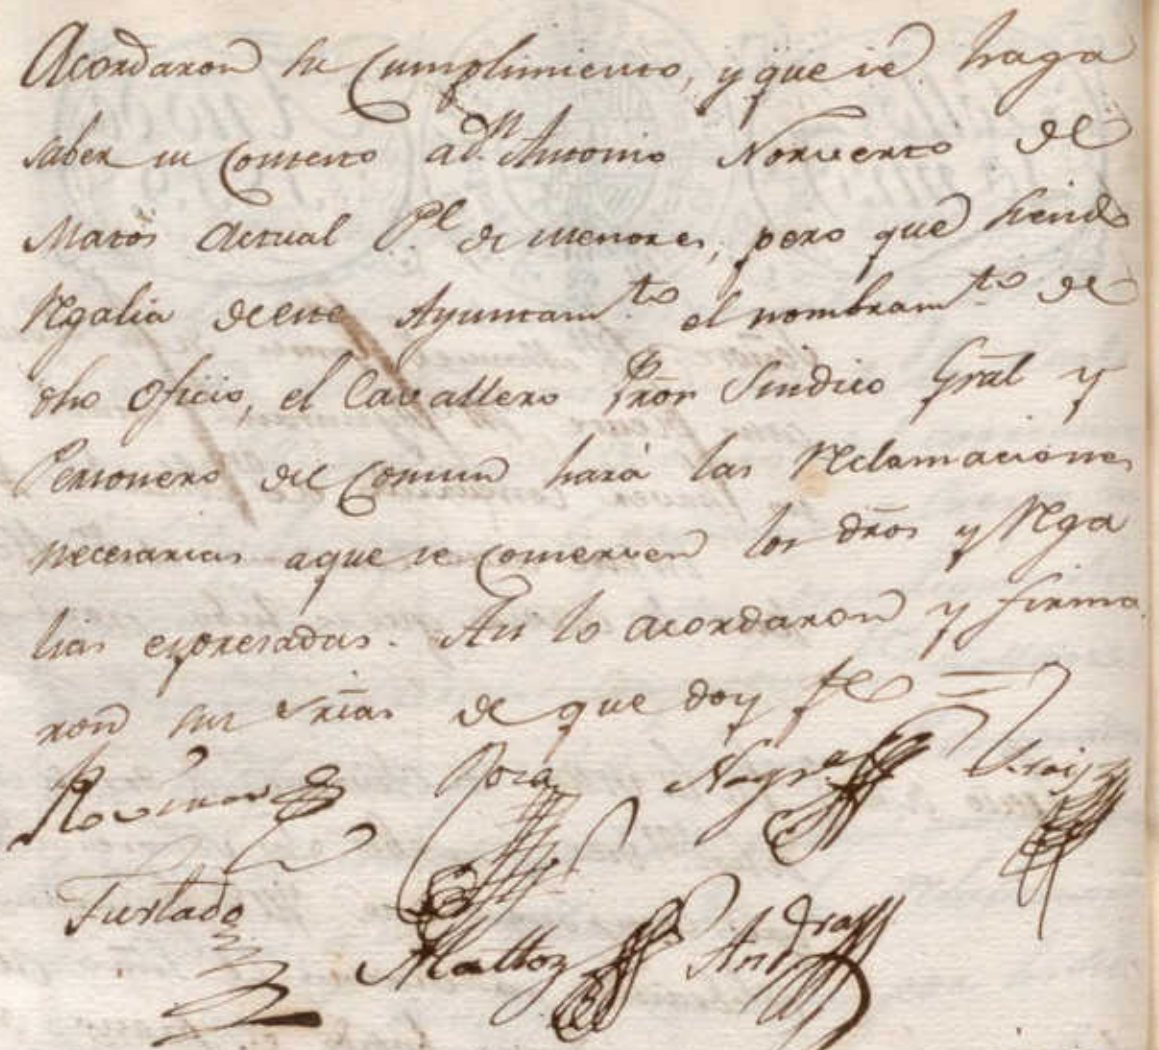 Acordaron su Cumplimiento, y que se haga
saber su Contesto a Dn. Antonio Norverto de
Matos Actual Pl. de menores, pero que siendo
Regalia de este Ayuntamto. el nombramto. de
dho Oficio, el Cavallero Pror Sindico Gral y
Personero del Comun hará las Reclamaciones
necesarias a que se conserven los dros y Rega
lias expresadas. Asi lo acordaron y firma
ron sus Srias de que doy fe =
Roca
Furtado Mattos